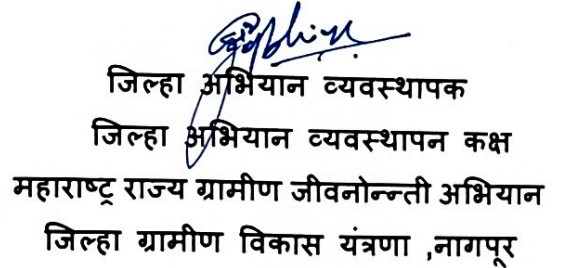 जिल्हा अभियान व्यवस्थापक
जिल्हा अभियान व्यवस्थापन कक्ष
महाराष्ट्र राज्य ग्रामीण जीवनोन्न्ती अभियान
जिल्हा ग्रामीण विकास यंत्रणा ,नागपूर